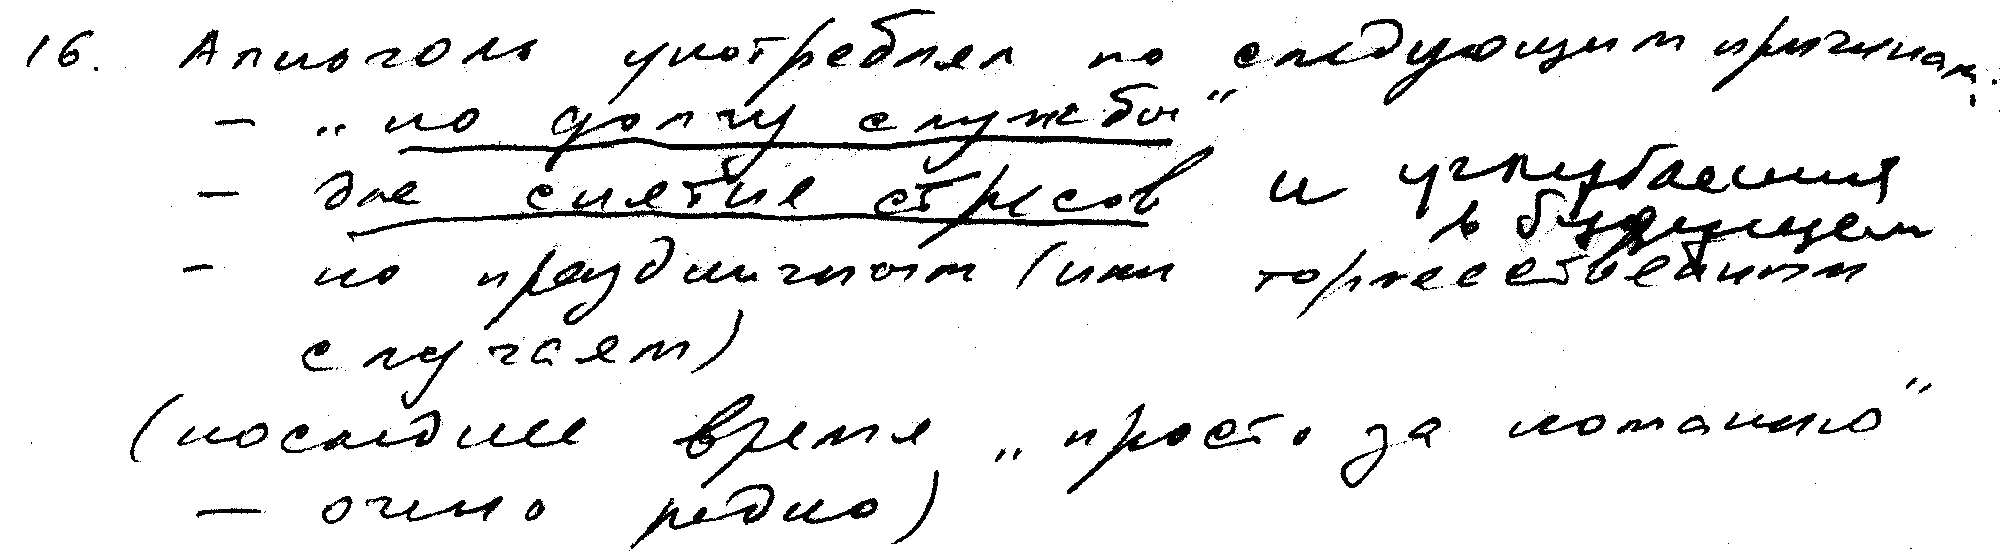 16. Алкоголь употреблял по следующим причинам:
– „по долгу службы“
– для снятие стресов и углубления
в будущем
– по праздничным (или торжественным
случаям)
(последнее время „просто за компанию“
– очень редко)